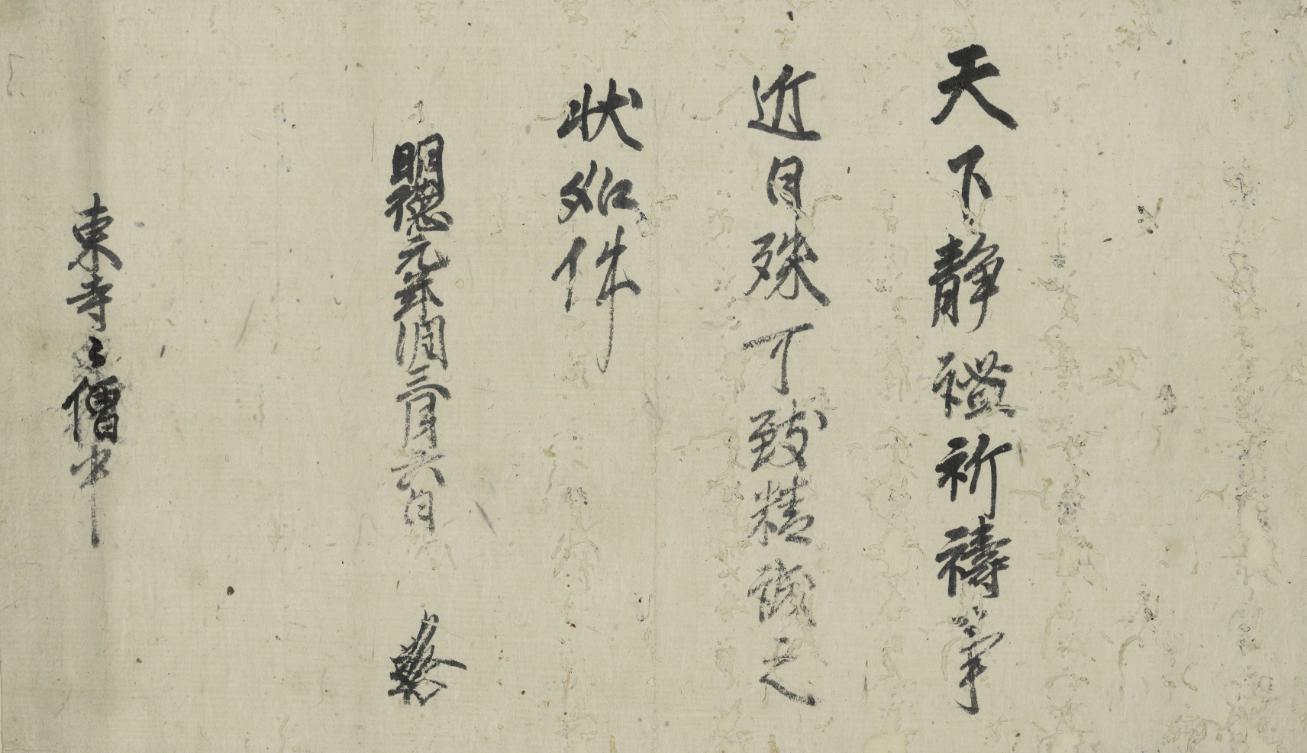 天下静謐祈禱事
近日殊可致精誠之
状如件
明徳元年閏三月六日
東寺々僧中